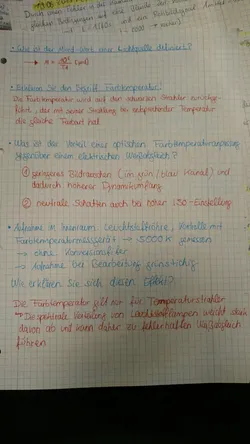 • Wie ist der Mired-Wert einer Lichtquelle definiert?
→ M = 10⁶/Tf (mrd)
• Erklären Sie den Begriff Farbtemperatur!
Die Farbtemperatur wird auf den schwarzen Strahler zurückge-
führt, der mit seiner Strahlung bei entsprechender Temperatur
die gleiche Farbart hat.
• Was ist der Vorteil einer optischen Farbtemperaturanpassung
gegenüber einem elektrischen Weißabgleich?
① geringeres Bildrauschen (im grün/blau Kanal) und
dadurch höherer Dynamikumfang
② neutrale Schatten auch bei hohen ISO-Einstellung
• Aufnahme in Innenraum, Leuchtstoffröhre, Vorfalle mit
Farbtemperaturmessgerät → 5000K gemessen
→ ohne Konversionsfilter
→ Aufnahme bei Bearbeitung grünstichig
Wie erklären Sie sich diesen Effekt?
Die Farbtemperatur gilt nur für Temperaturstrahler
→ Die spektrale Verteilung von Leuchtstofflampen weicht stark
davon ab und kann daher zu fehlerhaften Weißabgleich
führen